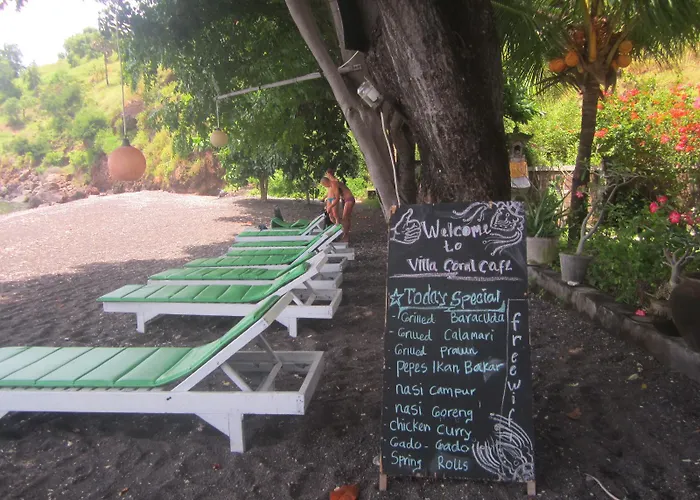 Welcome
to
Villa Coral Cafe
Today Special
Grilled Baracuda
Grilled Calamari
Grilled Prawn
pepes Ikan Bakar
nasi campur
nasi Goreng
chicken Curry
Gado-Gado
Spring Rolls
freewifi